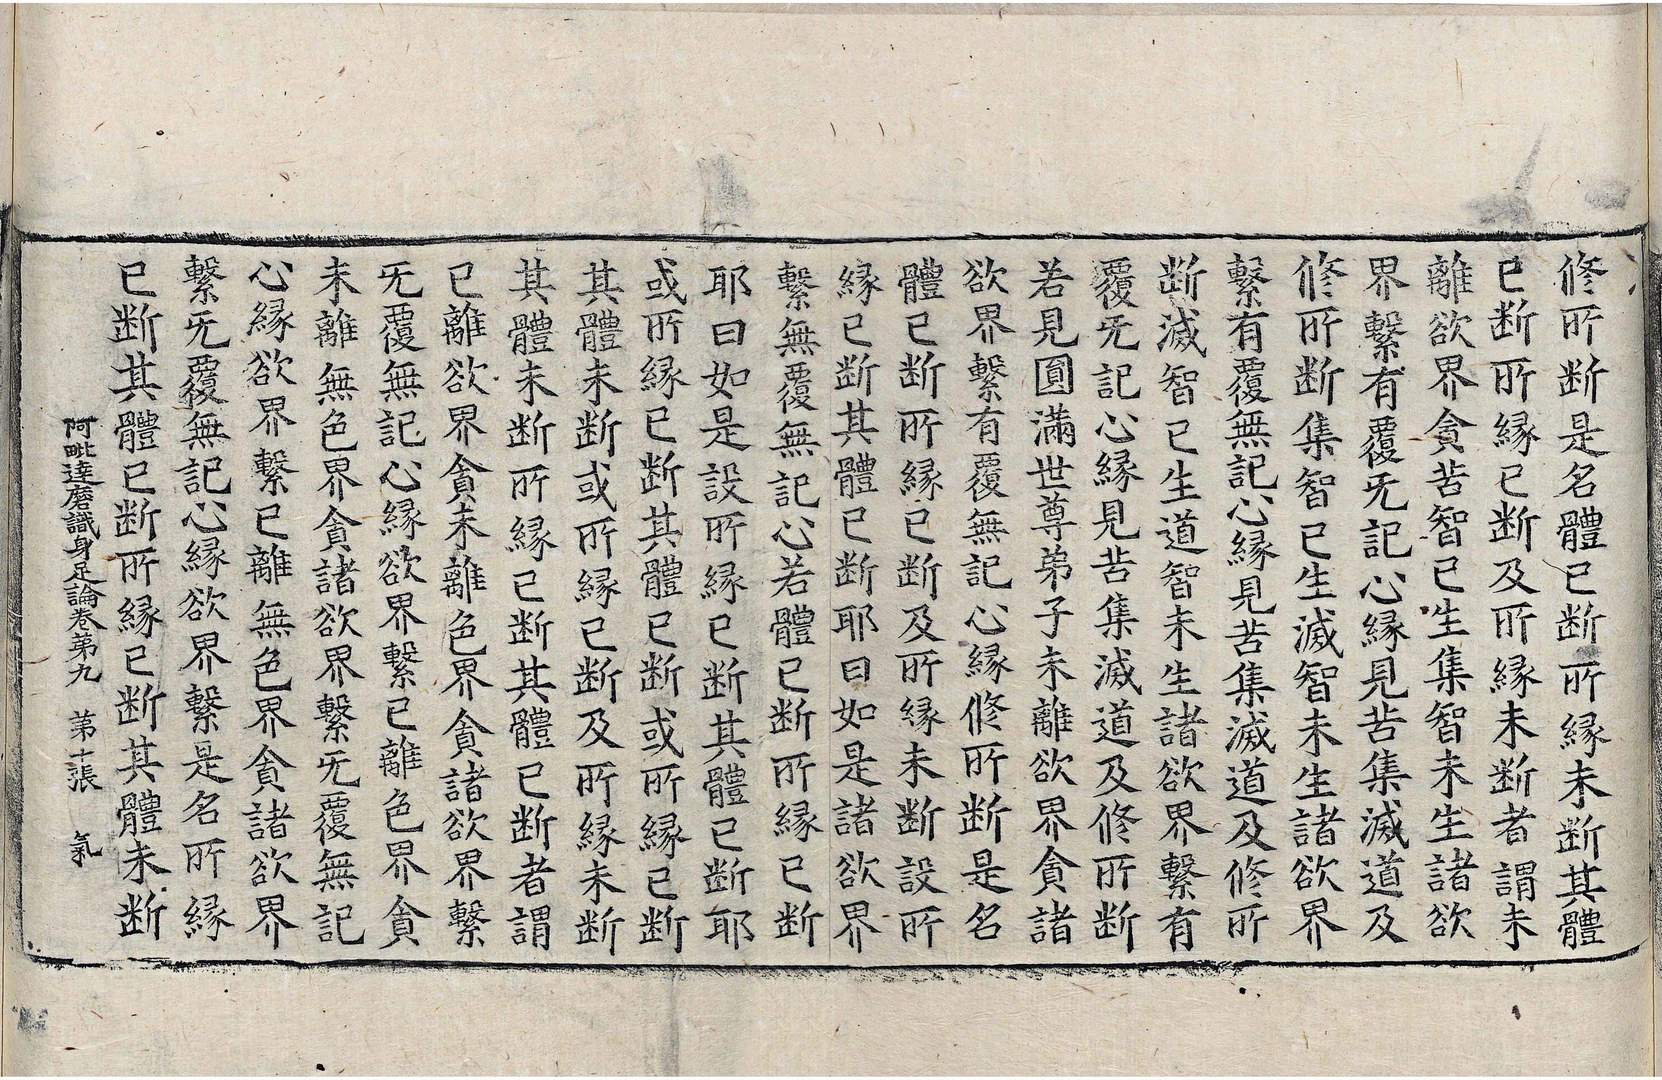 修所断是名體已断所縁未断其體
已断所縁已断及所縁未断者謂未
離欲界貪苦智已生集智未生諸欲
界繫有覆无記心縁見苦集滅道及
修所断集智已生滅智未生諸欲界
繫有覆無記心縁見苦集滅道及修所
断滅智已生道智未生諸欲界繫有
覆无記心縁見苦集滅道及修所断
若見圓滿世尊弟子未離欲界貪諸
欲界繫有覆無記心縁修所断是名
體已断所縁已断及所縁未断設所
縁已断其體已断耶曰如是諸欲界
繫無覆無記心若體已断所縁已断
耶曰如是設所縁已断其體已断耶
或所縁已断其體已断或所縁已断
其體未断或所縁已断及所縁未断
其體未断所縁已断其體已断者謂
已離欲界貪未離色界貪諸欲界繫
无覆無記心縁欲界繫已離色界貪
未離無色界貪諸欲界繫无覆無記
心縁欲界繫已離無色界貪諸欲界
繫无覆無記心縁欲界繫是名所縁
已断其體已断所縁已断其體未断
阿毗達磨識身足論卷第九 第十張 氣